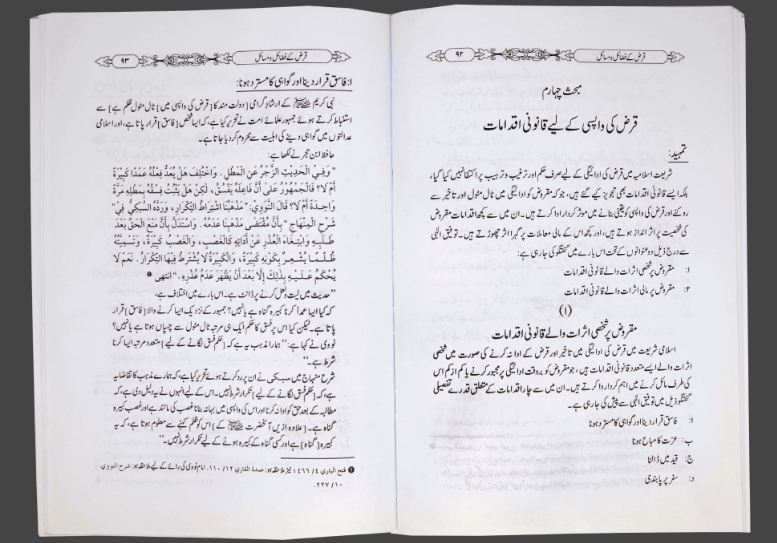 قرض کے فضائل و مسائل
۹۲
مبحث چہارم
قرض کی واپسی کے لیے قانونی اقدامات
تمہید:
شریعت اسلامیہ میں قرض کی ادائیگی کے لیے صرف حکم اور ترغیب و ترہیب پر اکتفا نہیں کیا گیا،
بلکہ ایسے قانونی اقدامات بھی تجویز کیے گئے ہیں، جو کہ مقروض کو ادائیگی میں ٹال مٹول اور تاخیر سے
روکنے اور قرض کی واپسی کو یقینی بنانے میں موثر کردار ادا کرتے ہیں۔ ان میں سے کچھ اقدامات مقروض
کی شخصیت پر اثر انداز ہوتے ہیں، اور کچھ اس کے مالی معاملات پر گہرا اثر چھوڑتے ہیں۔ توفیق الٰہی
سے درج ذیل دو عنوانوں کے تحت اس بارے میں گفتگو کی جارہی ہے:
۱: مقروض پر شخصی اثرات والے قانونی اقدامات
۲: مقروض پر مالی اثرات والے قانونی اقدامات
(۱)
مقروض پر شخصی اثرات والے قانونی اقدامات
اسلامی شریعت میں قرض کی ادائیگی میں تاخیر اور قرض کے ادا نہ کرنے کی صورت میں شخصی
اثرات والے ایسے متعدد قانونی اقدامات ہیں، جو مقروض کو بروقت ادائیگی پر مجبور کرنے یا کم از کم اس
کی طرف مائل کرنے میں اہم کردار ادا کرتے ہیں۔ ان میں سے چار اقدامات کے متعلق قدرے تفصیلی
گفتگو ذیل میں توفیق الٰہی سے پیش کی جارہی ہے۔
ا: فاسق قرار دینا اور گواہی کا مسترد ہونا
ب: عزت کا مباح ہونا
ج: قید میں ڈالنا
د: سفر پر پابندی
قرض کے فضائل و مسائل
۹۳
ا: فاسق قرار دینا اور گواہی کا مسترد ہونا:
نبی کریم ﷺ کے ارشاد گرامی [دولت مند کا [قرض کی واپسی میں] ٹال مٹول ظلم ہے] سے
استنباط کرتے ہوئے جمہور علمائے امت نے تحریر کیا ہے، کہ ایسا شخص [فاسق] قرار پاتا ہے، اور اسلامی
عدالتوں میں گواہی دینے کی اہلیت سے محروم کردیا جاتا ہے۔
حافظ ابن حجر نے لکھا ہے:
"وَفِي الْحَدِيْثِ الزَّجْرُ عَنِ الْمَطْلِ. وَاخْتُلِفَ هَلْ يُعَدُّ فِعْلُهُ عَمْدًا كَبِيْرَةً
أَمْ لَا؟ فَالْجُمْهُوْرُ عَلَى أَنَّ فَاعِلَهُ يَفْسُقُ، لٰكِنْ هَلْ يَثْبُتُ فِسْقُهُ بِمَطْلِهِ مَرَّةً
وَاحِدَةً أَمْ لَا؟ قَالَ النَّوَوِيُّ: "مَذْهَبُنَا اشْتِرَاطُ التَّكْرَارِ، وَرَدَّهُ السُّبْكِيُّ فِيْ"
شَرْحِ الْمِنْهَاجِ "بِأَنَّ مُقْتَضَى مَذْهَبِنَا عَدَمُهُ. وَاسْتَدَلَّ بِأَنَّ مَنْعَ الْحَقِّ بَعْدَ
طَلَبِهِ وَابْتِغَاءَ الْعُذْرِ عَنْ أَدَائِهِ كَالْغَصْبِ، وَالْغَصْبُ كَبِيْرَةٌ، وَتَسْمِيَتُهُ
ظُلْمًا يُشْعِرُ بِكَوْنِهِ كَبِيْرَةً، وَالْكَبِيْرَةُ لَا يُشْتَرَطُ فِيْهَا التَّكْرَارُ. نَعَمْ لَا
يُحْكَمُ عَلَيْهِ بِذٰلِكَ إِلَّا بَعْدَ أَنْ يَظْهَرَ عَدَمُ عُذْرِهِ." انتهى ❶
"حدیث میں لیت ولعل کرنے پر ڈانٹ ہے۔ اس بارے میں اختلاف ہے،
کہ کیا ایسا عمداً کرنا کبیرہ گناہ ہے یا نہیں؟ جمہور کے نزدیک ایسا کرنے والا [فاسق] قرار
پاتا ہے۔ لیکن کیا اس پر فسق کا حکم ایک ہی مرتبہ ٹال مٹول سے چسپاں ہوتا ہے یا نہیں؟
نووی نے کہا ہے: "ہمارا مذہب یہ ہے کہ [حکم فسق لگانے کے لیے] متعدد مرتبہ ایسا کرنا
شرط ہے۔"
شرح منہاج میں سبکی نے ان پر رد کرتے ہوئے تحریر کیا ہے، کہ ہمارے مذہب کا تقاضا یہ
ہے، کہ [حکم فسق لگانے کے لیے] تکرار شرط نہیں۔ اس کے لیے انہوں نے یہ دلیل دی ہے، کہ
مطالبہ کے بعد حق کو ادا نہ کرنا اور اس کی واپسی میں بہانہ بنانا غصب کی مانند ہے اور غصب کبیرہ
گناہ ہے۔ [علاوہ ازیں آنحضرت ﷺ کے] اس کو ظلم کہنے سے معلوم ہوتا ہے، کہ یہ
کبیرہ [گناہ] ہے اور کسی گناہ کے کبیرہ ہونے کے لیے تکرار شرط نہیں۔"
❶ فتح الباري ٤/ ٤٦٦؛ نیز ملاحظہ ہو: عمدة القاري ١٢/ ١١٠. امام نووی کی رائے کے لیے ملاحظہ ہو: شرح النووي
١٠/ ٢٢٧.